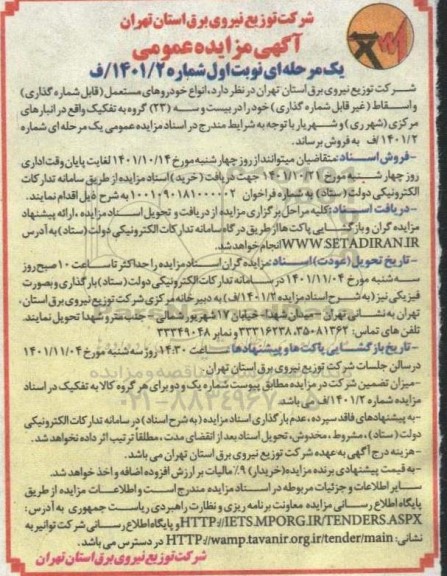 شرکت توزیع نیروی برق استان تهران
آگهی مزایده عمومی
یک مرحله ای نوبت اول شماره ۱۴۰۱/۲/ف
شرکت توزیع نیروی برق استان تهران در نظر دارد، انواع خودروهای مستعمل (قابل شماره گذاری)
و اسقاط (غیر قابل شماره گذاری) خود را در بیست و سه (۲۳) گروه به تفکیک واقع در انبارهای
مرکزی (شهرری) و شهریار با توجه به شرایط مندرج در اسناد مزایده عمومی یک مرحله ای شماره
۱۴۰۱/۲/ف به فروش برساند.
-فروش اسناد: متقاضیان میتوانند از روز چهارشنبه مورخ ۱۴۰۱/۱۰/۱۴ لغایت پایان وقت اداری
روز چهارشنبه مورخ ۱۴۰۱/۱۰/۲۱ جهت دریافت (خرید) اسناد مزایده از طریق سامانه تدارکات
الکترونیکی دولت (ستاد) به شماره فراخوان ۱۰۰۱۰۹۰۱۸۱۰۰۰۰۰۲ به شرح ذیل اقدام نمایند.
-دریافت اسناد: کلیه مراحل برگزاری مزایده از دریافت و تحویل اسناد مزایده ، ارائه پیشنهاد
مزایده گران و بازگشایی پاکت ها از طریق درگاه سامانه تدارکات الکترونیکی دولت (ستاد) به آدرس
WWW.SETADIRAN.IR انجام خواهد شد.
-تاریخ تحویل (عودت) اسناد: مزایده گران اسناد مزایده را حداکثر تا ساعت ۱۰ صبح روز
سه شنبه مورخ ۱۴۰۱/۱۱/۰۴ در سامانه تدارکات الکترونیکی دولت (ستاد) بارگذاری و بصورت
فیزیکی نیز (به شرح اسناد مزایده ۱۴۰۱/۲/ف) به دبیرخانه مرکزی شرکت توزیع نیروی برق استان
تهران به نشانی تهران - میدان شهدا - خیابان ۱۷ شهریور شمالی - جنب مترو شهدا تحویل نمایند.
تلفن های تماس: ۳۵۰۸۱۳۶۲، ۳۳۳۱۶۲۳۸ و نمابر ۳۳۳۴۹۰۴۸
-تاریخ بازگشایی پاکت ها و پیشنهادها: ساعت ۱۴:۳۰ روز سه شنبه مورخ ۱۴۰۱/۱۱/۰۴
در سالن جلسات شرکت توزیع نیروی برق استان تهران
-میزان تضمین شرکت در مزایده مطابق پیوست شماره یک و دو برای هر گروه کالا به تفکیک در اسناد
مزایده شماره ۱۴۰۱/۲/ف می باشد.
-به پیشنهادهای فاقد سپرده، عدم بارگذاری اسناد مزایده (به شرح اسناد) در سامانه تدارکات الکترونیکی
دولت (ستاد) ، مشروط ، مخدوش، تحویل اسناد بعد از انقضای مدت، مطلقاً ترتیب اثر داده نخواهد شد.
-هزینه درج آگهی به عهده شرکت توزیع نیروی برق استان تهران می باشد.
-به قیمت پیشنهادی برنده مزایده (خریدار) ۹٪ مالیات بر ارزش افزوده اضافه و اخذ خواهد شد.
سایر اطلاعات و جزئیات مربوطه در اسناد مزایده مندرج است و اطلاعات مزایده از طریق
پایگاه اطلاع رسانی مزایده معاونت برنامه ریزی و نظارت راهبردی ریاست جمهوری به آدرس:
HTTP://IETS.MPORG.IR/TENDERS.ASPX و پایگاه اطلاع رسانی شرکت توانیر به
نشانی: HTTP://wamp.tavanir.org.ir/tender/main در دسترس می باشد.
شرکت توزیع نیروی برق استان تهران